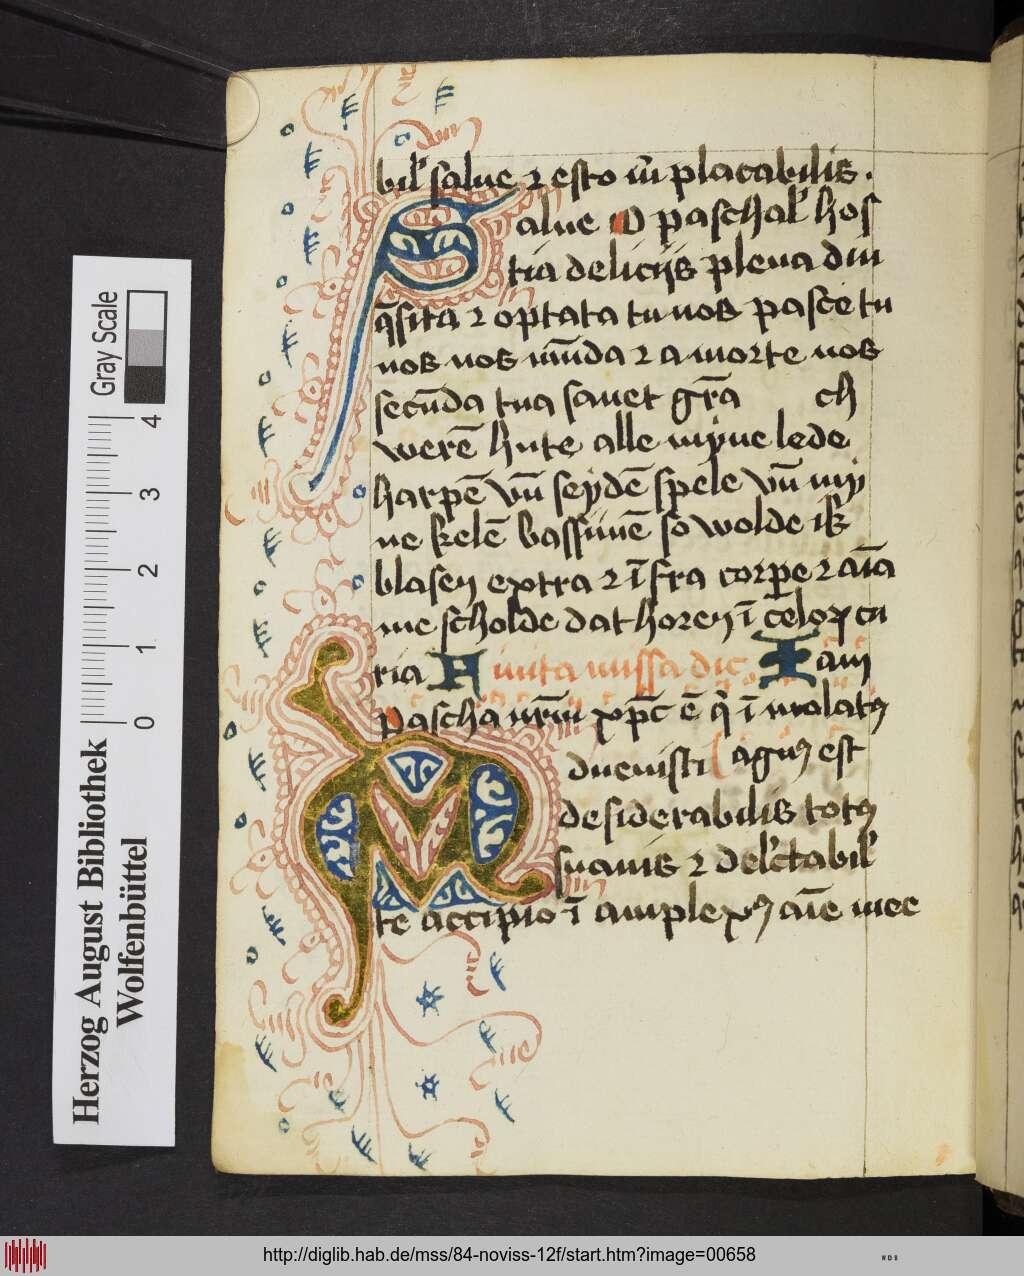 bil' salue ⁊ esto m̄ placabilis.
Salue O paschal' hos
tia deliciis plena diu
q̄sita ⁊ optata tu nos pasce tu
nos nos mūda ⁊ a morte nos
secūda tua sauet gr̄a ch
werē hute alle myne lede
harpē vn̄ seydē spele vn̄ my
ne kelē bassunē so wolde ik
blasen extra ⁊ īfra corpe ⁊ aīa
me scholde dat horen ī celoꝝ cu
ria A finita missa dic Iam
pascha nr̄m xp̄c ē q̄ īmolatꝰ
Aduenisti agnꝰ est
desiderabilis totꝰ
suauis ⁊ del'ctabil'
te accipio ī amplexꝰ aīe mee
Herzog August Bibliothek
Wolfenbüttel
0 1 2 3 4
Gray Scale
http://diglib.hab.de/mss/84-noviss-12f/start.htm?image=00658